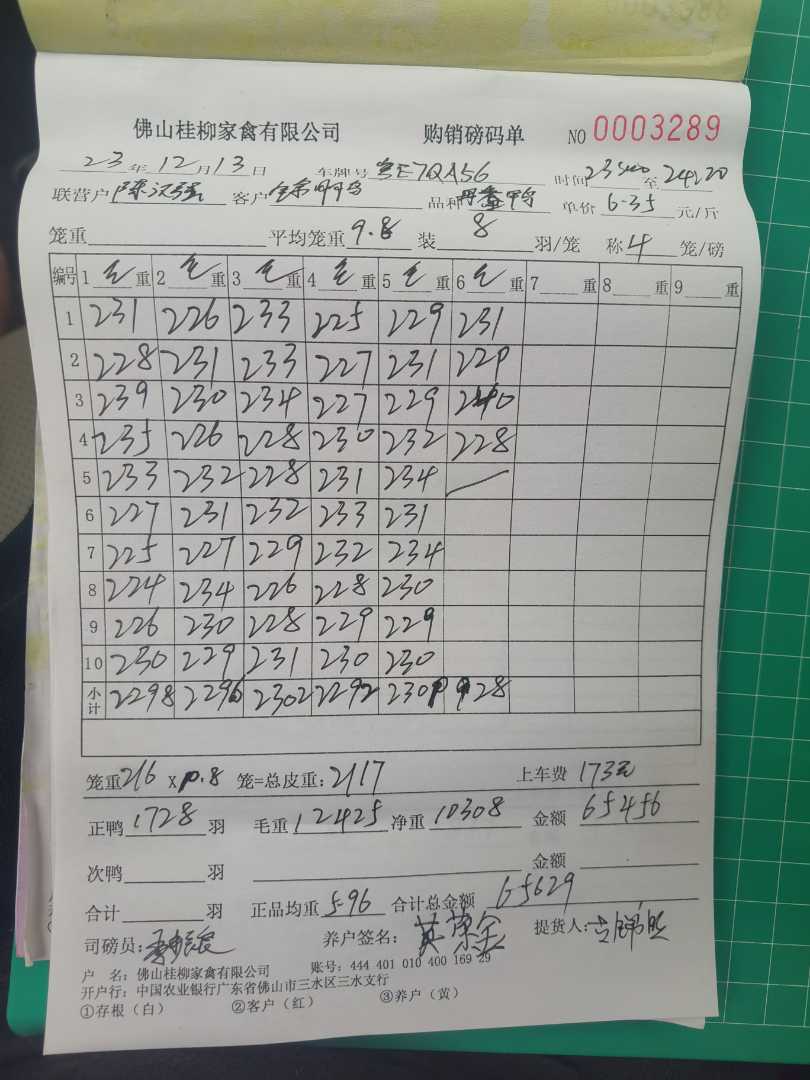 佛山桂柳家禽有限公司 购销磅码单 NO 0003289
23年12月13日 车牌号 粤E7QA56 时间 至 24:20
联营户 陈汉强 客户 品种 鸭 单价 6.35 元/斤
笼重 平均笼重 9.8 装 8 羽/笼 称 4 笼/磅
编号 1 毛 重 2 毛 重 3 毛 重 4 毛 重 5 毛 重 6 毛 重 7 重 8 重 9 重
1 231 226 233 225 229 231
2 228 231 233 227 231 229
3 239 230 234 227 229 240
4 235 226 228 230 232 228
5 233 232 228 231 234
6 227 231 232 233 231
7 225 227 229 232 234
8 224 234 226 228 230
9 226 230 228 229 229
10 230 229 231 230 230
小计 2298 2296 2302 2292 2309 928
笼重 216 × 9.8 笼=总皮重: 2117 上车费 173元
正鸭 1728 羽 毛重 12425 净重 10308 金额 65456
次鸭 羽 金额
合计 羽 正品均重 5.96 合计总金额 65629
司磅员: 养户签名: 提货人:
户 名: 佛山桂柳家禽有限公司 账号: 444 401 010 400 169 29
开户行: 中国农业银行广东省佛山市三水区三水支行
①存根(白) ②客户(红) ③养户(黄)